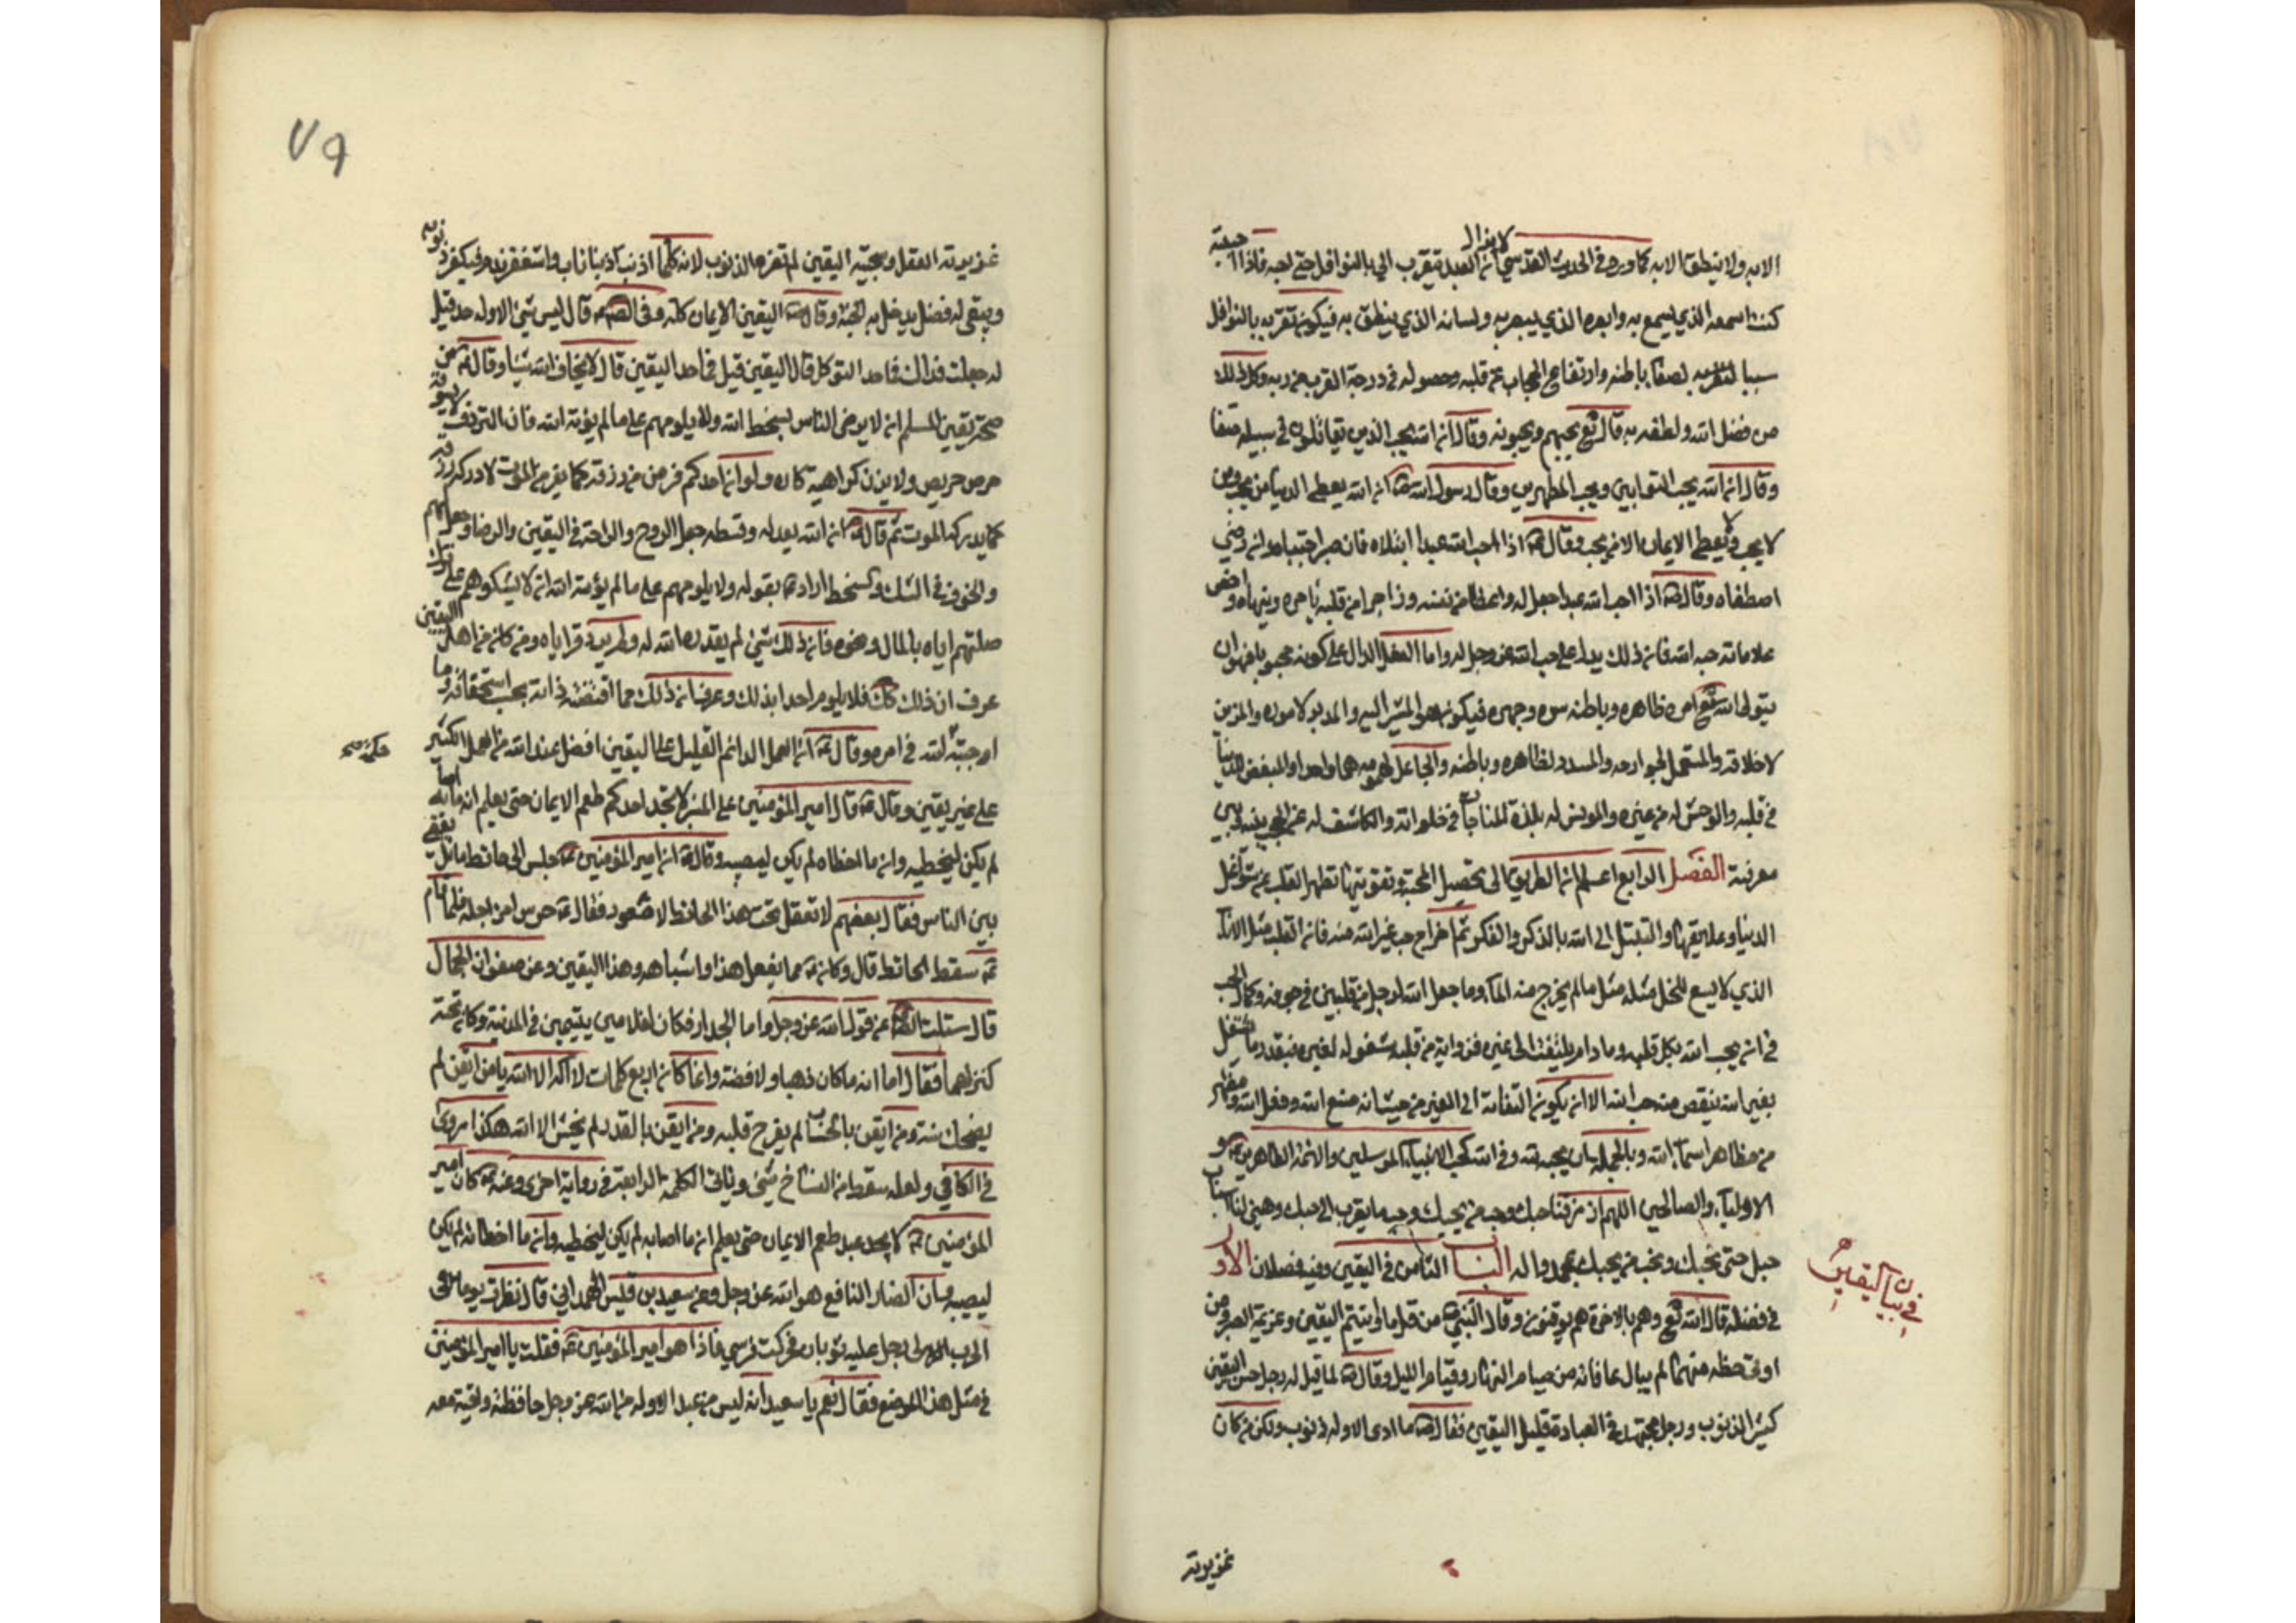 الا به ولا ينطق الا به كما ورد في الحديث القدسي لا يزال العبد يتقرب الي بالنوافل حتى احبه فاذا احببته
كنت سمعه الذي يسمع به وبصره الذي يبصر به ولسانه الذي ينطق به فيكون تقربه بالنوافل
سببا لصفاء باطنه وارتفاع الحجاب عن قلبه وحصوله في درجة القرب من ربه وكل ذلك
من فضل الله ولطفه به قال تع يحبهم ويحبونه وقال ان الله يحب الذين يقاتلون في سبيله صفا
وقال ان الله يحب التوابين ويحب المتطهرين وقال رسول الله ص ان الله يعطي الدنيا من يحب ومن
لا يحب ولا يعطي الايمان الا من يحب وقال ص اذا احب الله عبدا ابتلاه فان صبر اجتباه وان رضي
اصطفاه وقال ص اذا احب الله عبدا جعل له واعظا من نفسه وزاجرا من قلبه يامره وينهاه واخص
علاماته حبه الله فان ذلك يدل على حب الله عز وجل له واما الفعل الدال على كونه محبوبا فهو ان
يتولى الله تع امره ظاهره وباطنه سره وجهره فيكون هو المشير اليه والمدبر لاموره والمزين
لاخلاقه والمستعمل لجوارحه والمسدد لظاهره وباطنه والجاعل همومه هما واحدا والمبغض للدنيا
في قلبه والموحش له من غيره والمونس له بلذة المناجات في خلواته والكاشف له عن الحجب بينه وبين
معرفته الفصل الرابع اعلم ان الطريق الى تحصيل المحبة وتقويتها تطهير القلب عن شواغل
الدنيا وعلايقها والتبتل الى الله بالذكر والفكر ثم اخراج حب غير الله منه فان القلب مثل الاناء
الذي لا يسع للخل مثلا مالم يخرج منه الماء وما جعل الله لرجل من قلبين في جوفه وكمال الحب
في ان يحب الله بكل قلبه وما دام يلتفت الى غيره فزاوية من قلبه مشغولة لغيره فبقدر ما يشتغل
بغير الله ينقص منه حب الله الا ان يكون التفاته الى الغير من حيث انه صنع الله وفعل الله ومظهر
من مظاهر اسماء الله وبالجملة بان يحبه لله وفي الله كحب الانبياء المرسلين والائمة الطاهرين ع و
الاولياء والصالحين اللهم ارزقنا حبك وحب من يحبك وحب ما يقرب الى حبك وهيئ لنا اسباب
حبك حتى نحبك ونحب من يحبك بمحمد واله الباب الثامن في اليقين وفيه فصلان الاول
في فضله قال الله تع وهم بالاخرة هم يوقنون وقال النبي ص من اقل ما اوتيتم اليقين وعزيمة الصبر ومن
اوتي حظه منهما لم يبال ما فاته من صيام النهار وقيام الليل وقال ص لما قيل له رجل حسن اليقين
كثير الذنوب ورجل مجتهد في العبادة قليل اليقين فقال ص ما ادمي الا وله ذنوب ولكن من كان
في بيان اليقين
غزيرته
٧٩
غزيرته العقل وسجيته اليقين لم تضره الذنوب لانه كلما اذنب ذنبا تاب واستغفر وندم فيكفر ذنوبه
ويبقى له فضل يدخل به الجنة وقال ص اليقين الايمان كله وفي ص قال ليس شئ الا وله حد قيل
له جعلت فداك فما حد التوكل قال اليقين قيل فما حد اليقين قال لا يخاف الله شيئا وقال ع من
صحة يقين المسلم ان لا يرضي الناس بسخط الله ولا يلومهم على ما لم يؤته الله فان الرزق لا يسوقه
حرص حريص ولا يرده كراهية كاره ولو ان احدكم فر من رزقه كما يفر من الموت لادركه رزقه
كما يدركه الموت ثم قال ان الله بعدله وقسطه جعل الروح والراحة في اليقين والرضا وجعل الهم
والحزن في الشك والسخط اراد ع بقوله ولا يلومهم على ما لم يؤته الله ان لا يشكوهم على ترك
صلتهم اياه بالمال ونحوه فان ذلك شئ لم يقدره الله له ولم يرزقه اياه ومن كان من اهل اليقين
عرف ان ذلك كك فلا يلوم احدا بذلك وعرف ان ذلك مما اقتضته ذاته بحسب استحقاقه وما
اوجبته حكمة الله في امره وقال ع ان العمل الدائم القليل على اليقين افضل عند الله من العمل الكثير
على غير يقين وقال ع قال امير المؤمنين على المنبر لا يجد احدكم طعم الايمان حتى يعلم ان ما اصابه
لم يكن ليخطيه وان ما اخطاه لم يكن ليصيبه وقال ع ان امير المؤمنين ع جلس الى حائط مائل يقضي
بين الناس فقال بعضهم لا تقعد تحت هذا الحائط فانه معور فقال ع حرس امرء اجله فلما قام
ع سقط الحائط قال وكان ع مما يفعل هذا واشباهه وهذا اليقين وعن صفوان الجمال
قال سئلت الص عن قول الله عز وجل واما الجدار فكان لغلامين يتيمين في المدينة وكان تحته
كنز لهما فقال اما انه ما كان ذهبا ولا فضة وانما كان اربع كلمات لا اله الا الله انا من ايقن لم
يضحك سنه ومن ايقن بالحساب لم يفرح قلبه ومن ايقن بالقدر لم يخش الا الله هكذا مروي
في الكافي ولعله سقط من النساخ شئ وياتي الكلمة الرابعة في رواية اخرى وعنه ع كان امير
المؤمنين ع لا يجد عبد طعم الايمان حتى يعلم ان ما اصابه لم يكن ليخطيه وان ما اخطائه لم يكن
ليصيبه وان الضار النافع هو الله عز وجل وعن سعيد بن قيس الهمداني قال نظرت يوما في
الحرب الى رجل عليه ثوبان فحركت فرسي فاذا هو امير المؤمنين ع فقلت يا امير المؤمنين
في مثل هذا الموضع فقال نعم يا سعيد انه ليس من عبد الا وله من الله عز وجل حافظ وواقية معه
حكمة صح